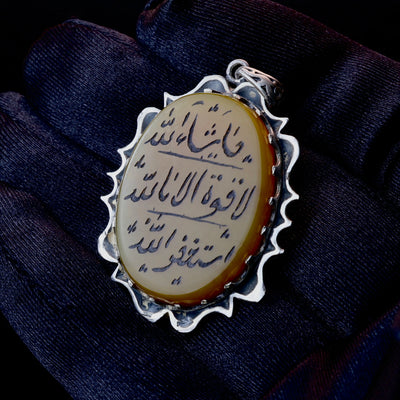 ما شاء الله
لا قوة الا بالله
استغفر الله